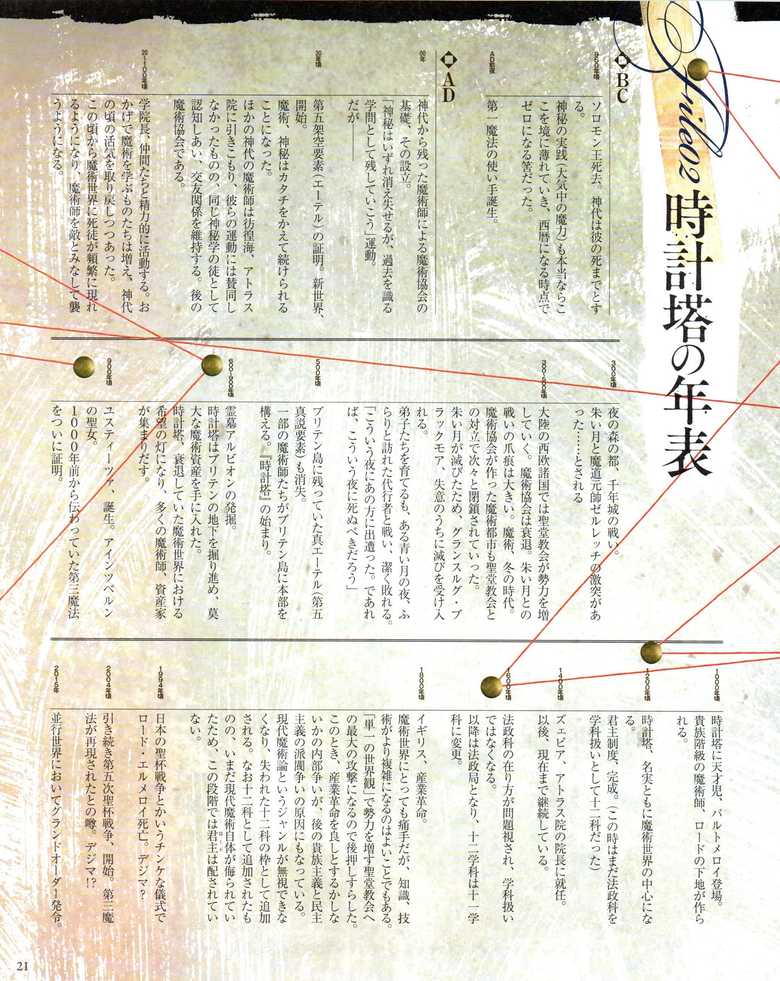 File02
時計塔の年表
■BC
950年頃
ソロモン王死去、神代は彼の死までとす
る。
神秘の実践（大気中の魔力）も本当ならこ
こを境に薄れていき、西暦になる時点で
ゼロになる筈だった。
AD前夜
第一魔法の使い手誕生。
■AD
00年
神代から残った魔術師による魔術協会の
基礎、その設立。
「神秘はいずれ消え失せるが、過去を識る
学問として残していこう」運動。
だが――
30年頃
第五架空要素（エーテル）の証明。新世界、
開始。
魔術、神秘はカタチをかえて続けられる
ことになった。
ほかの神代の魔術師は彷徨海、アトラス
院に引きこもり、彼らの運動には賛同し
なかったものの、同じ神秘学の徒として
認知しあい、交友関係を維持する。後の
魔術協会である。
20〜100年頃
学院長、仲間たちと精力的に活動する。お
かげで魔術を学ぶものたちは増え、神代
の頃の活気を取り戻しつつあった。
この頃から魔術世界に死徒が頻繁に現れ
るようになり、魔術師を敵とみなして襲
うようになる。
300年頃
夜の森の都、千年城の戦い。
朱い月と魔道元帥ゼルレッチの激突があ
った……とされる
300〜500年頃
大陸の西欧諸国では聖堂教会が勢力を増
していく。魔術協会は衰退。朱い月との
戦いの爪痕は大きい。魔術、冬の時代。
魔術協会が作った魔術都市も聖堂教会と
の対立で次々と閉鎖されていった。
朱い月が滅びたため、グランスルグ・ブ
ラックモア、失意のうちに滅びを受け入
れる。
弟子たちを育てるも、ある青い月の夜、ふ
らりと訪れた代行者と戦い、潔く敗れる。
「こういう夜にあの方に出遭った。であれ
ば、こういう夜に死ぬべきだろう」
500年頃
ブリテン島に残っていた真エーテル（第五
真説要素）も消失。
一部の魔術師たちがブリテン島に本部を
構える。『時計塔』の始まり。
600〜900年頃
霊墓アルビオンの発掘。
時計塔はブリテンの地下を掘り進め、莫
大な魔術資産を手に入れた。
時計塔、衰退していた魔術世界における
希望の灯になり、多くの魔術師、資産家
が集まりだす。
900年頃
ユスティーツァ、誕生。アインツベルン
の聖女。
1000年前から伝わっていた第三魔法
をついに証明。
1000年頃
時計塔に天才児、バルトメロイ登場。
貴族階級の魔術師、ロードの下地が作ら
れる。
1200年頃
時計塔、名実ともに魔術世界の中心にな
る。
君主制度、完成。（この時はまだ法政科を
学科扱いとして十二科だった）
1400年頃
ズェピア、アトラス院の院長に就任。
以後、現在まで継続している。
1600年頃
法政科の在り方が問題視され、学科扱い
ではなくなる。
以降は法政局となり、十二学科は十一学
科に変更。
1800年頃
イギリス、産業革命。
魔術世界にとっても痛手だが、知識、技
術がより複雑になるのはよいことでもある。
「単一の世界観」で勢力を増す聖堂教会へ
の最大の攻撃になるので後押しすらした。
このとき、産業革命を良しとするかしな
いかの内部争いが、後の貴族主義と民主
主義の派閥争いの原因にもなっている。
現代魔術論というジャンルが無視できな
くなり、失われた十二科の枠として追加
される。なお十二科として追加されたも
のの、いまだ現代魔術自体が侮られてい
たため、この段階では君主は配されてい
ない。
1994年頃
日本の聖杯戦争とかいうチンケな儀式で
ロード・エルメロイ死亡。デジマ？
2004年頃
引き続き第五次聖杯戦争、開始。第三魔
法が再現されたとの噂。デジマ!?
2015年
並行世界においてグランドオーダー発令。
21